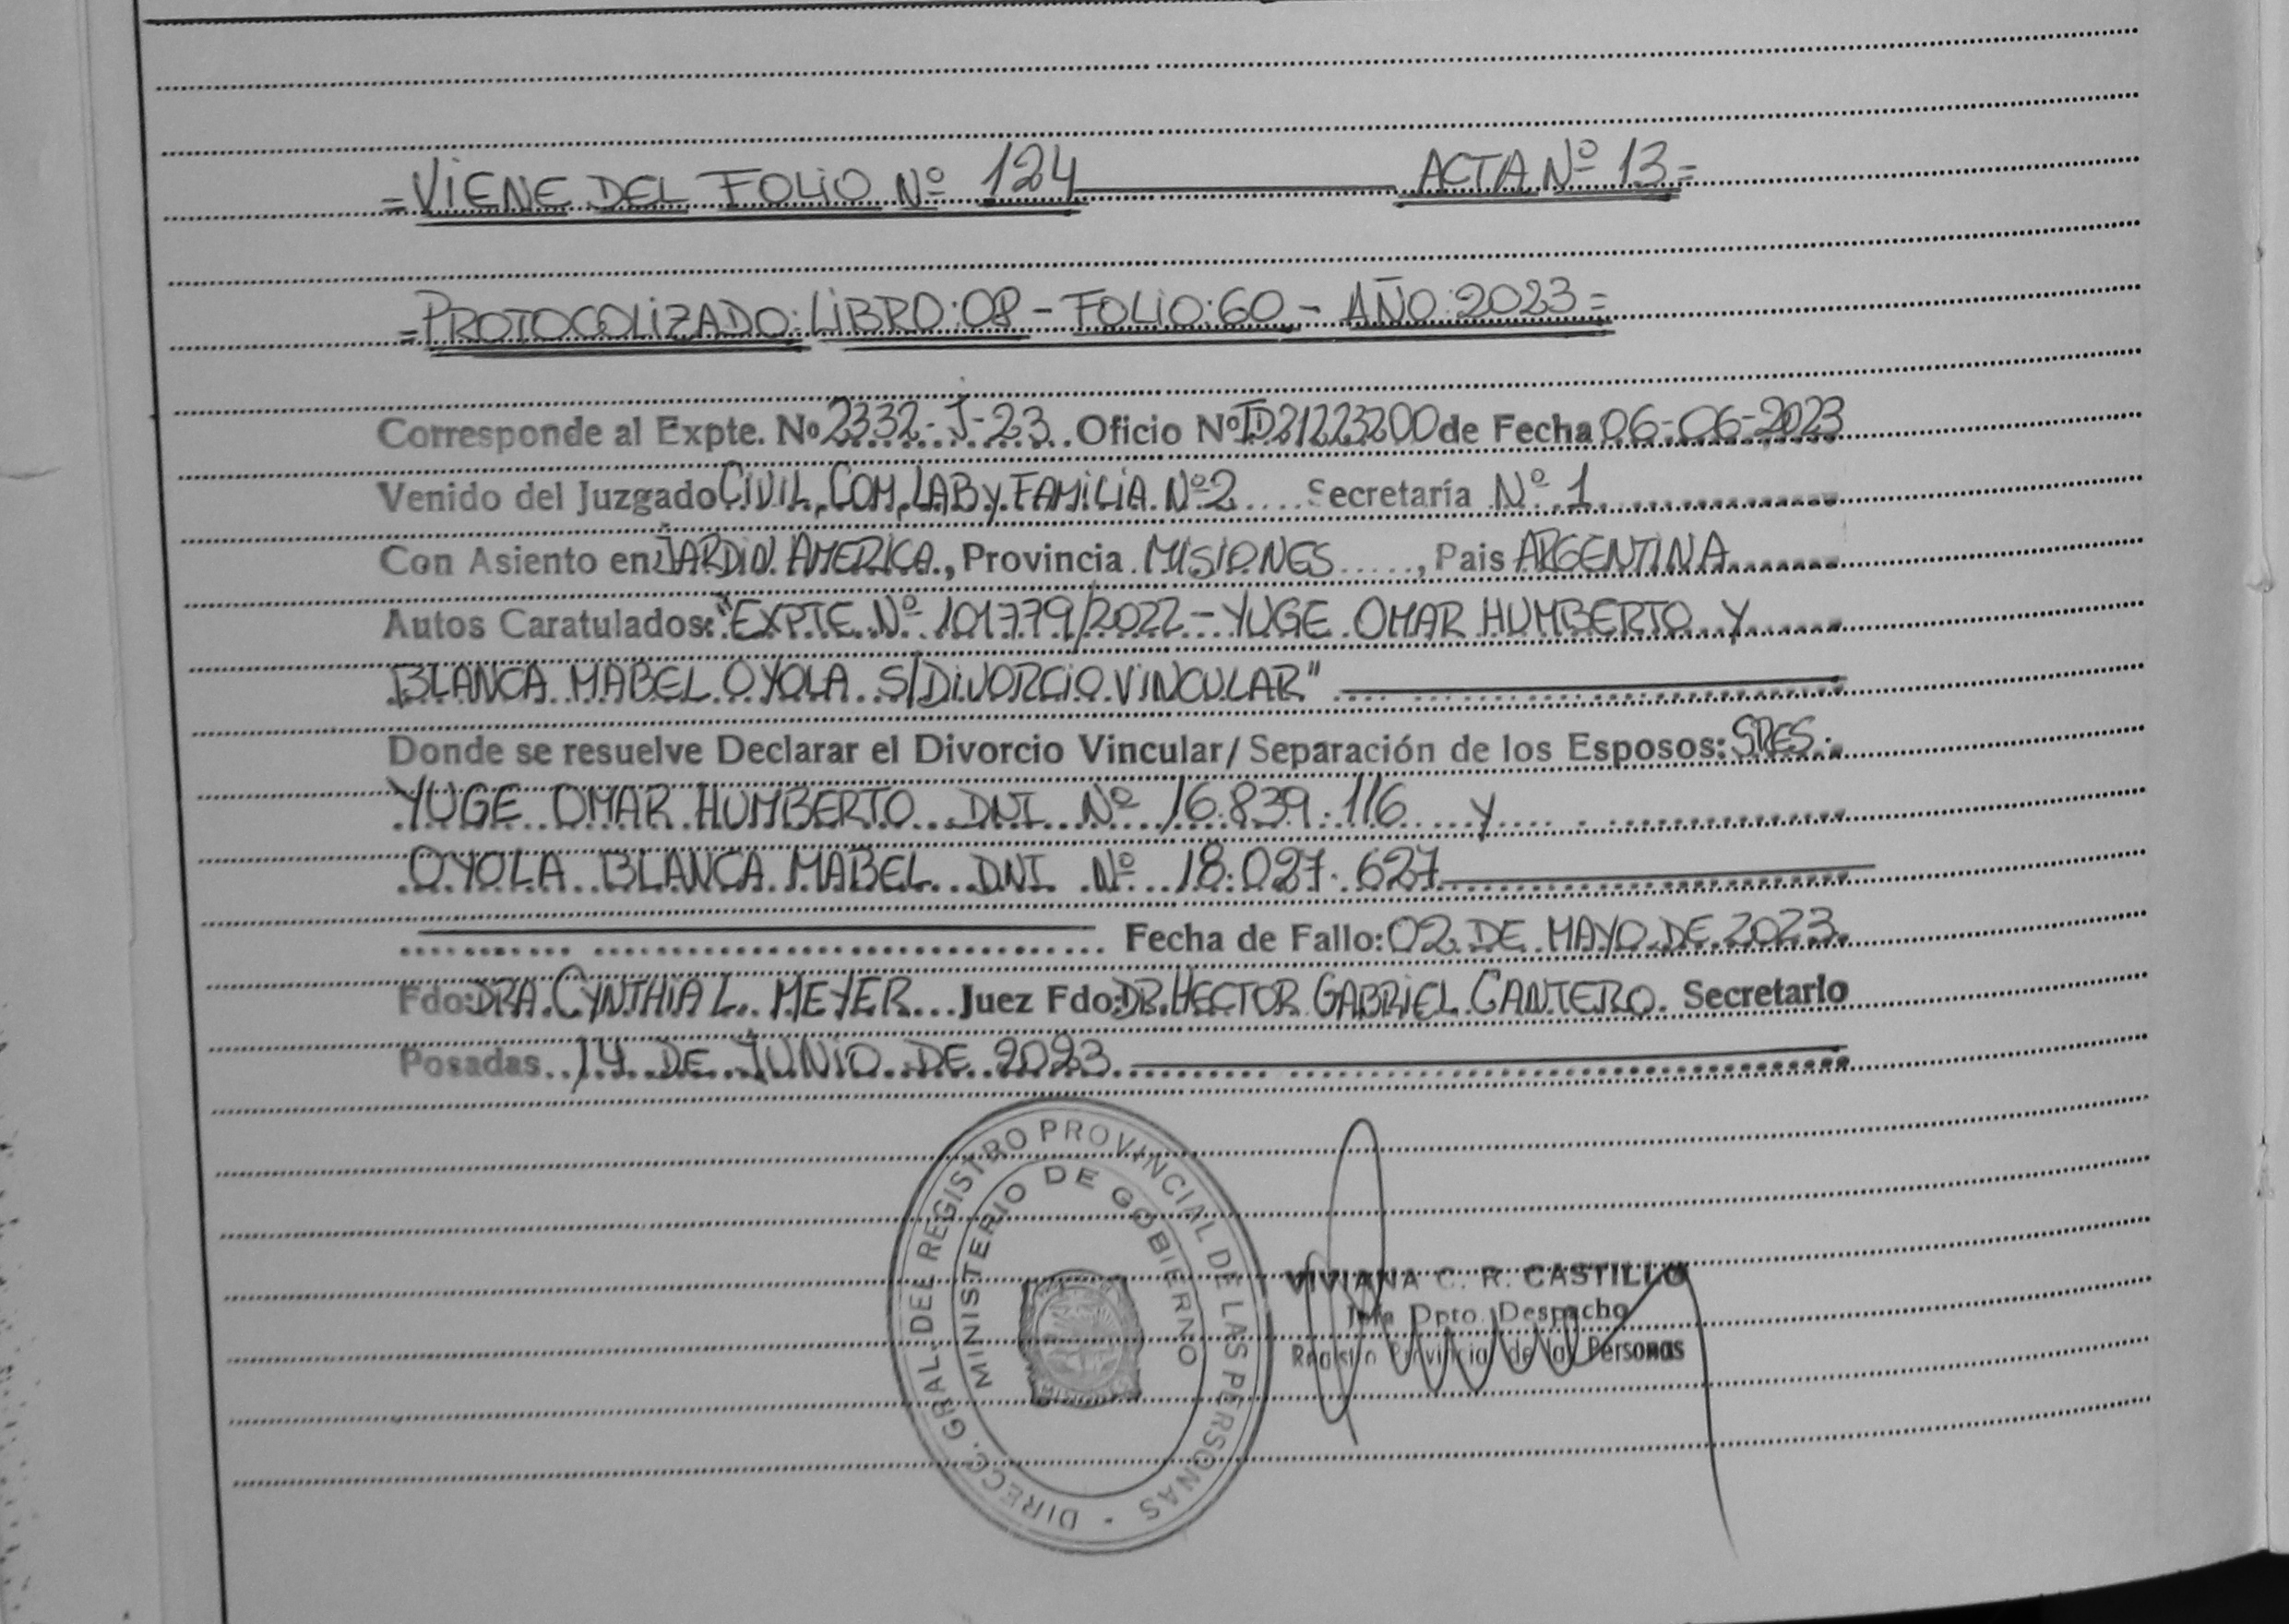 =VIENE DEL FOLIO Nº 124 ACTA Nº 13=
=PROTOCOLIZADO: LIBRO: 08 - FOLIO: 60 - AÑO: 2023=
Corresponde al Expte. Nº 2332-J-23 Oficio Nº ID21223200 de Fecha 06-06-2023
Venido del Juzgado CIVIL, COM, LAB y FAMILIA Nº 2 Secretaría Nº 1
Con Asiento en JARDIN AMERICA, Provincia MISIONES, Pais ARGENTINA
Autos Caratulados: "EXPTE Nº 101779/2022 - YUGE OMAR HUMBERTO Y
BLANCA MABEL OYOLA S/DIVORCIO VINCULAR"
Donde se resuelve Declarar el Divorcio Vincular/ Separación de los Esposos: SRES.
YUGE OMAR HUMBERTO DNI Nº 16.839.116 y
OYOLA BLANCA MABEL DNI Nº 18.027.627
Fecha de Fallo: 02 DE MAYO DE 2023.
Fdo: DRA. CYNTHIA L. MEYER Juez Fdo: DR. HECTOR GABRIEL CANTERO. Secretario
Posadas 14 DE JUNIO DE 2023
DIRECC. GRAL. DEL REGISTRO PROVINCIAL DE LAS PERSONAS
MINISTERIO DE GOBIERNO
VIVIANA C. R. CASTILLO
Jefa Dpto. Despacho
Registro Provincial de las Personas